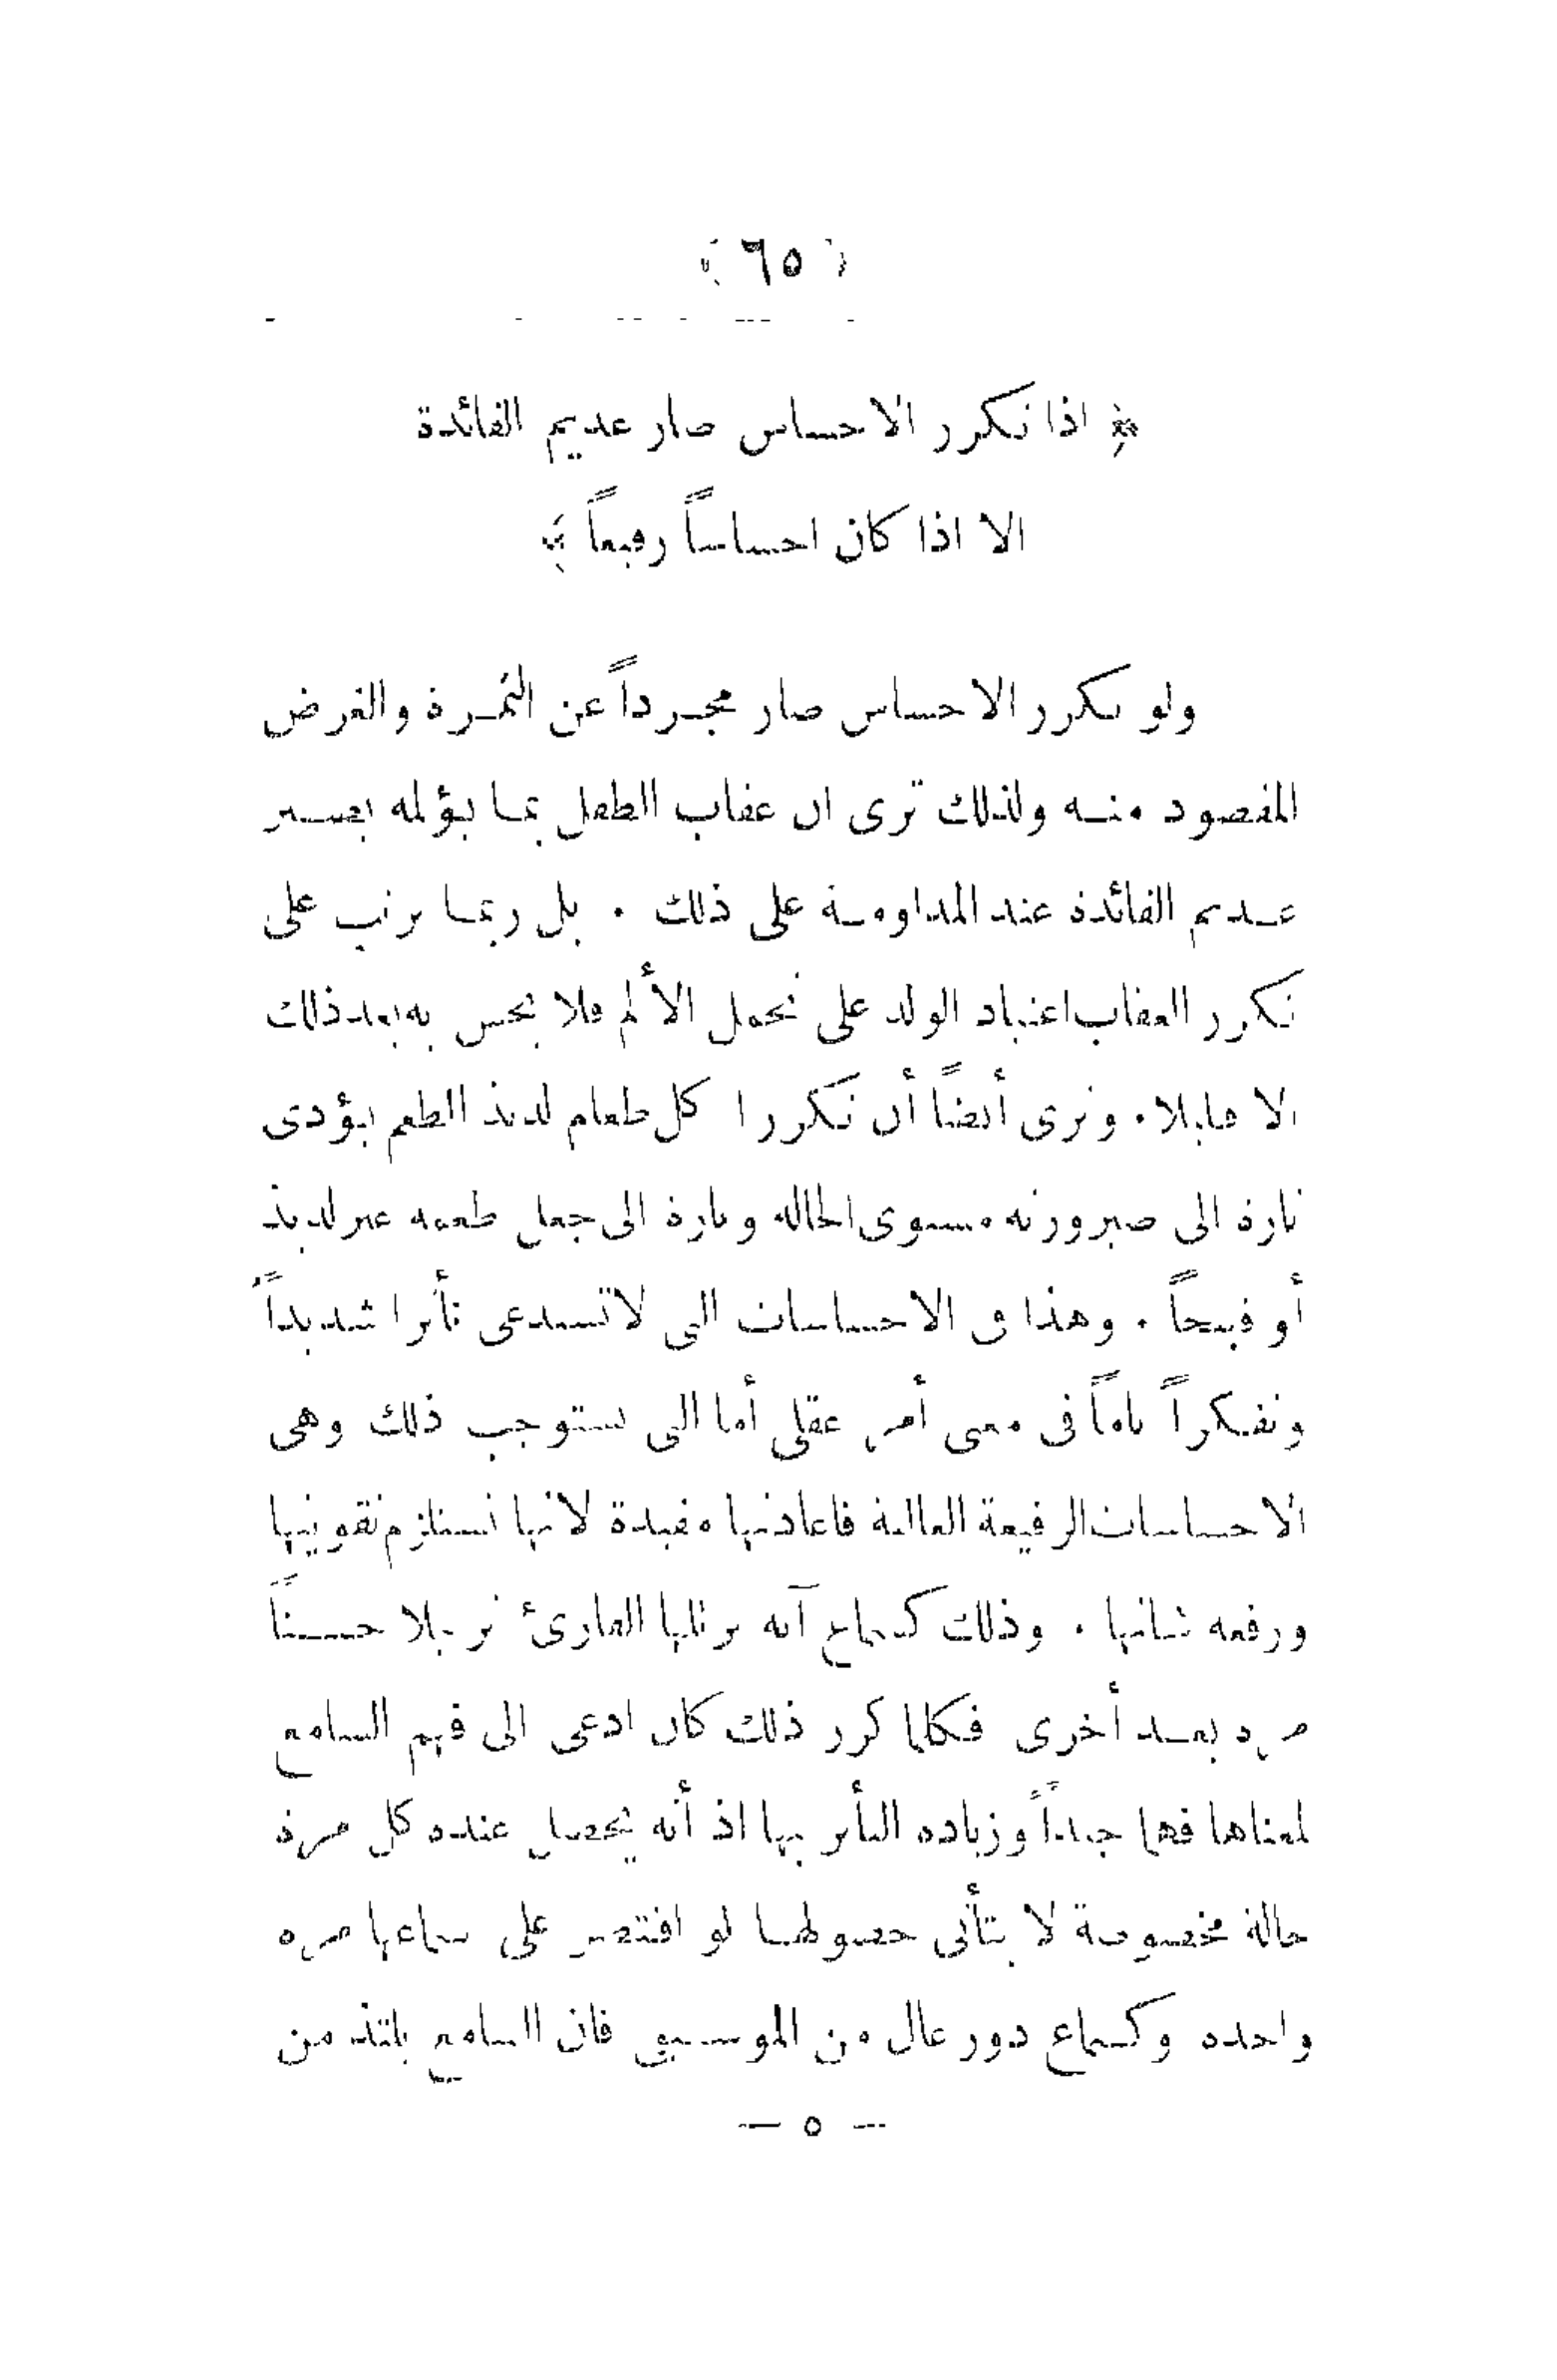 ﴿ ٦٥ ﴾
﴿ اذا تكرر الاحساس صار عديم الفائدة
الا اذا كان احساساً رفيعاً ﴾
ولو تكرر الاحساس صار مجرداً عن الثمرة والغرض
المقصود منه ولذلك ترى ان عقاب الطفل بما يؤلمه يصير
عديم الفائدة عند المداومة على ذلك . بل ربما ترتب على
تكرر العقاب اعتياد الولد على تحمل الألم فلا يحس به بعد ذلك
الا قليلا . ونرى أيضاً أن تكرر اكل طعام لذيذ الطعم يؤدى
تارة الى صيرورته مستوى الحالة وتارة الى جعل طعمه غير لذيذ
أو قبيحاً . وهذا فى الاحساسات التى لا تستدعى تأثرا شديداً
وتفكراً تاماً فى معنى أمر عقلى أما التى تستوجب ذلك وهى
الاحساسات الرفيعة العالية فاعادتها مفيدة لانها تستلزم تقويتها
ورفعة شانها . وذلك كسماع آية يرتلها القارئ ترتيلا حسناً
مرة بعد أخرى فكلما كرر ذلك كان ادعى الى فهم السامع
لمعناها فهما جيداً وزيادة التأثر بها اذ أنه يحصل عنده كل مرة
حالة مخصوصة لا يتأتى حصولها لو اقتصر على سماعها مرة
واحدة وكسماع دور عال من الموسيقى فان السامع يلتذ من
— ٥ —